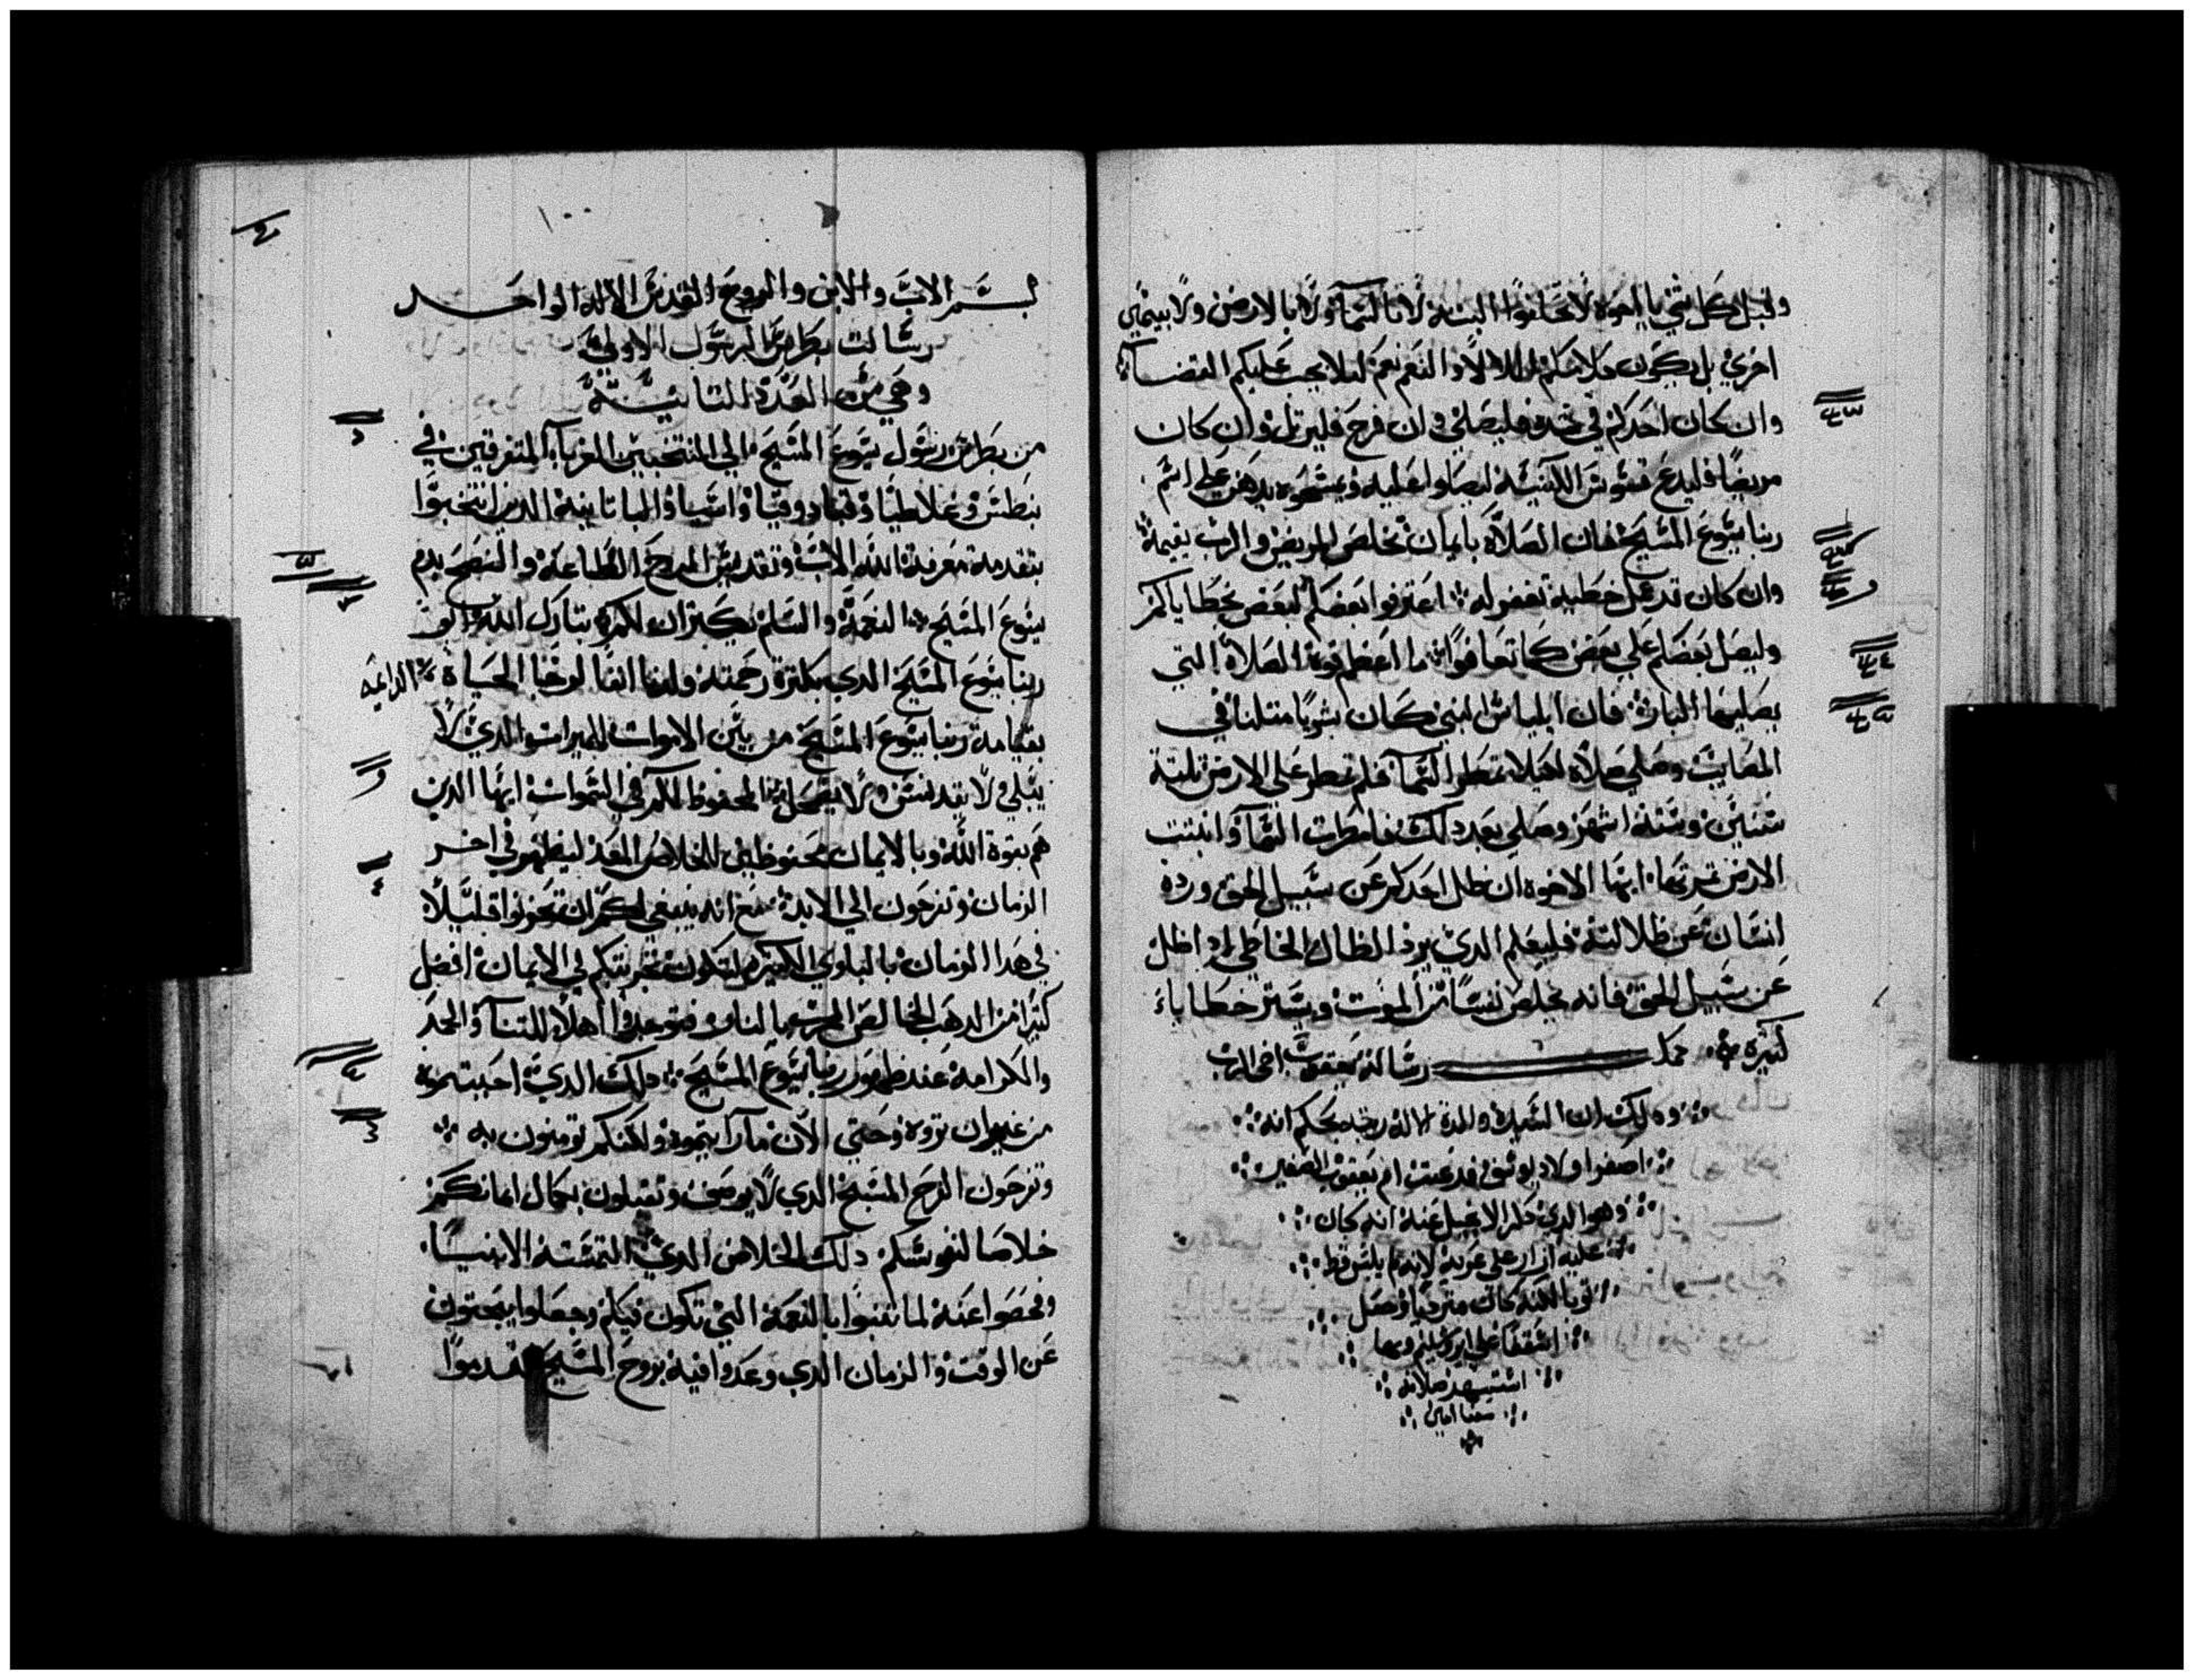 وقبل كل شي يا اخوه لا تحلفوا البته لا بالسَّمآ ولا بالارض ولا بيمين
اخري بل يكون كلامكم اللا لا والنعم نعم ليلا يجب عليكم القضاء
وان كان احدكم في شده فليصلي وان فرح فليرتل وان كان
مريضا فليدع قسوس الكنيسه ليصلوا عليه ويمسحوه بدهن علي اسم
ربنا يسوع المسيح فان الصلاة بايمان تخلص المريض والرب يقيمه
وان كان قد عمل خطيه تغفر له اعترفوا بعضكم لبعض بخطاياكم
وليصل بعضكم علي بعض كما تعافوا ما اعظم قوة الصلاة التي
يصليها البار فان ايلياس النبي كان بشريا متلنا في
المصايب وصلي صلاه لكيلا تمطر السمآ فلم تمطر علي الارض تلتة
سنين وستة اشهر وصلي بعد دلك فامطرت السمآ وانبتت
الارض تمرتها ايها الاخوه ان ظل احدكم عن سبيل الحق ورده
انسان عن ظلالته فليعلم الدي يرد الظال الخاطي اد اظل
عن سبيل الحق فانه يخلص نفسا من الموت ويستر خطاياه
كتيره كمل رسالة يعقوب اخي الرب
اصغر اولاد يوسف
وهو الدي دكر الانجيل عنه انه كان
عليه ازار علي عريه لانه لم يلبس قط
توبا لكنه كان
اسقفا علي اورشليم وبها
استشهد صلاته
معنا امين
١٠٠
بسم الاب والابن والروح القدس الاله الواحد
رسالت بطرس الرسول الاولي
وهي من العدد التانيه
من بطرس رسول يسوع المسيح الي المنتخبين الغربآ المتفرقين في
بنطس وغلاطيا وقبادوقيا واسيا والباتانية الدين انتخبوا
بتقدمة معرفة الله الاب وتقديس الروح الطاعه والنضح بدم
يسوع المسيح النعمة والسلم يكتران لكم تبارك الله ابو
ربنا يسوع المسيح الدي بكترة رحمته ولدنا التا لرجا الحياة
بقيامة ربنا يسوع المسيح من بين الاموات للميرات الدي لا
يبلي ولا يتدنس ولا يضمحل المحفوظ لكم في السموات ايها الدين
هم بقوة الله وبالايمان محفوظين للخلاص المعد ليظهر في اخر
الزمان وتفرحون الي الابد مع انه ينبغي لكم ان تحزنوا قليلا
في هدا الزمان بالبلوي الكتيره لتكون تجربتكم في الايمان افضل
كتيرا من الدهب الخالص المجرب بالنار فتوجدوا اهلا للتنآ والمجد
والكرامة عند ظهور ربنا يسوع المسيح دلك الدي احببتموه
من غير ان تروه وحتي الان ما رايتموه ولكنكم تومنون به
وتفرحون الفرح المسبح الدي لا يوصف وتقبلون بكمال ايمانكم
خلاصا لنفوسكم دلك الخلاص الدي التمسته الانبيا
وفحصوا عنه لما تنبوا بالنعمة التي تكون فيكم وجعلوا يبحتون
عن الوقت والزمان الدي وعدوا فيه بروح المسيح